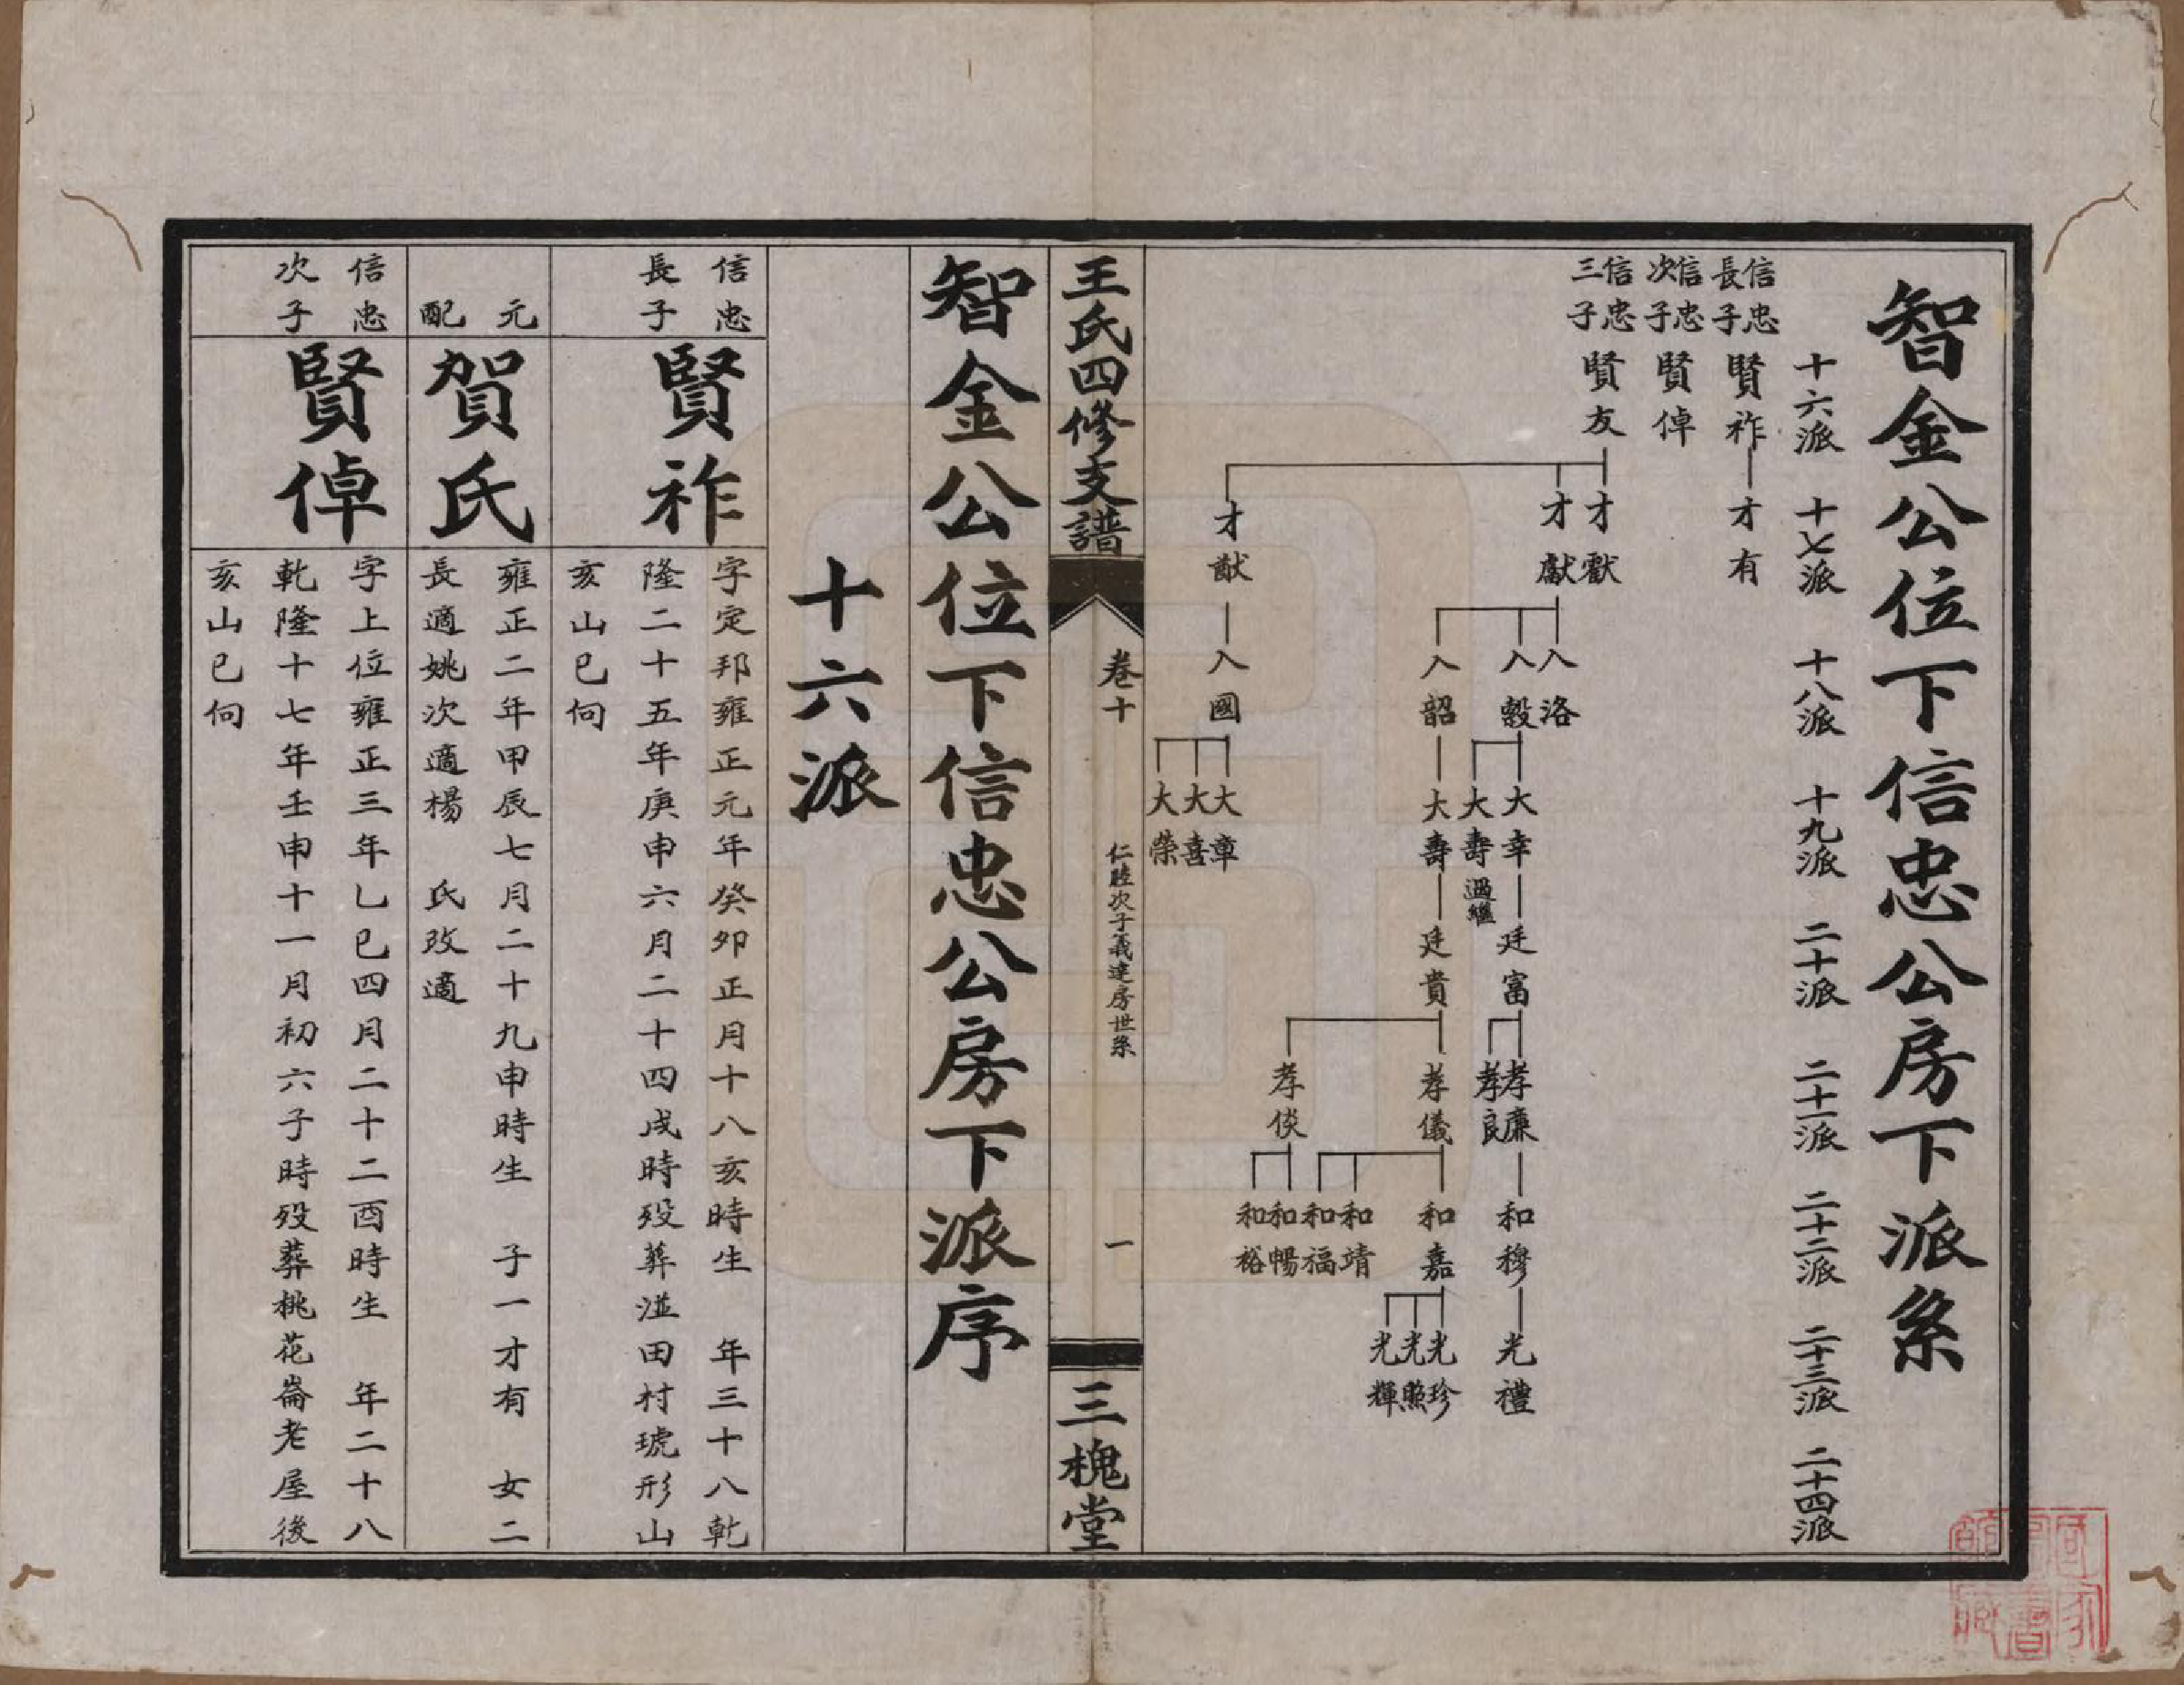 智金公位下信忠公房下派系
十六派 十七派 十八派 十九派 二十派 二十一派 二十二派 二十三派 二十四派
信忠長子 賢祚 才有
信忠次子 賢倬
信忠三子 賢友
才獻 才獻 才猷
入洛 入穀 入韶 入國
大幸 大壽過繼 大壽 大章 大喜 大榮
廷富 廷貴
孝廉 孝良 孝儀 孝倓
和穆 和嘉 和靖 和福 和暢 和裕
光禮 光珍 光熙 光輝
王氏四修支譜
卷十
仁睦次子義達房世系
一
三槐堂
智金公位下信忠公房下派序
十六派
信忠
長子
賢祚
字定邦雍正元年癸卯正月十八亥時生 年三十八乾
隆二十五年庚申六月二十四戌時歿葬湴田村琥形山
亥山巳向
元
配
賀氏
雍正二年甲辰七月二十九申時生 子一才有 女二
長適姚次適楊 氏改適
信忠
次子
賢倬
字上位雍正三年乙巳四月二十二酉時生 年二十八
乾隆十七年壬申十一月初六子時歿葬桃花崙老屋後
亥山巳向